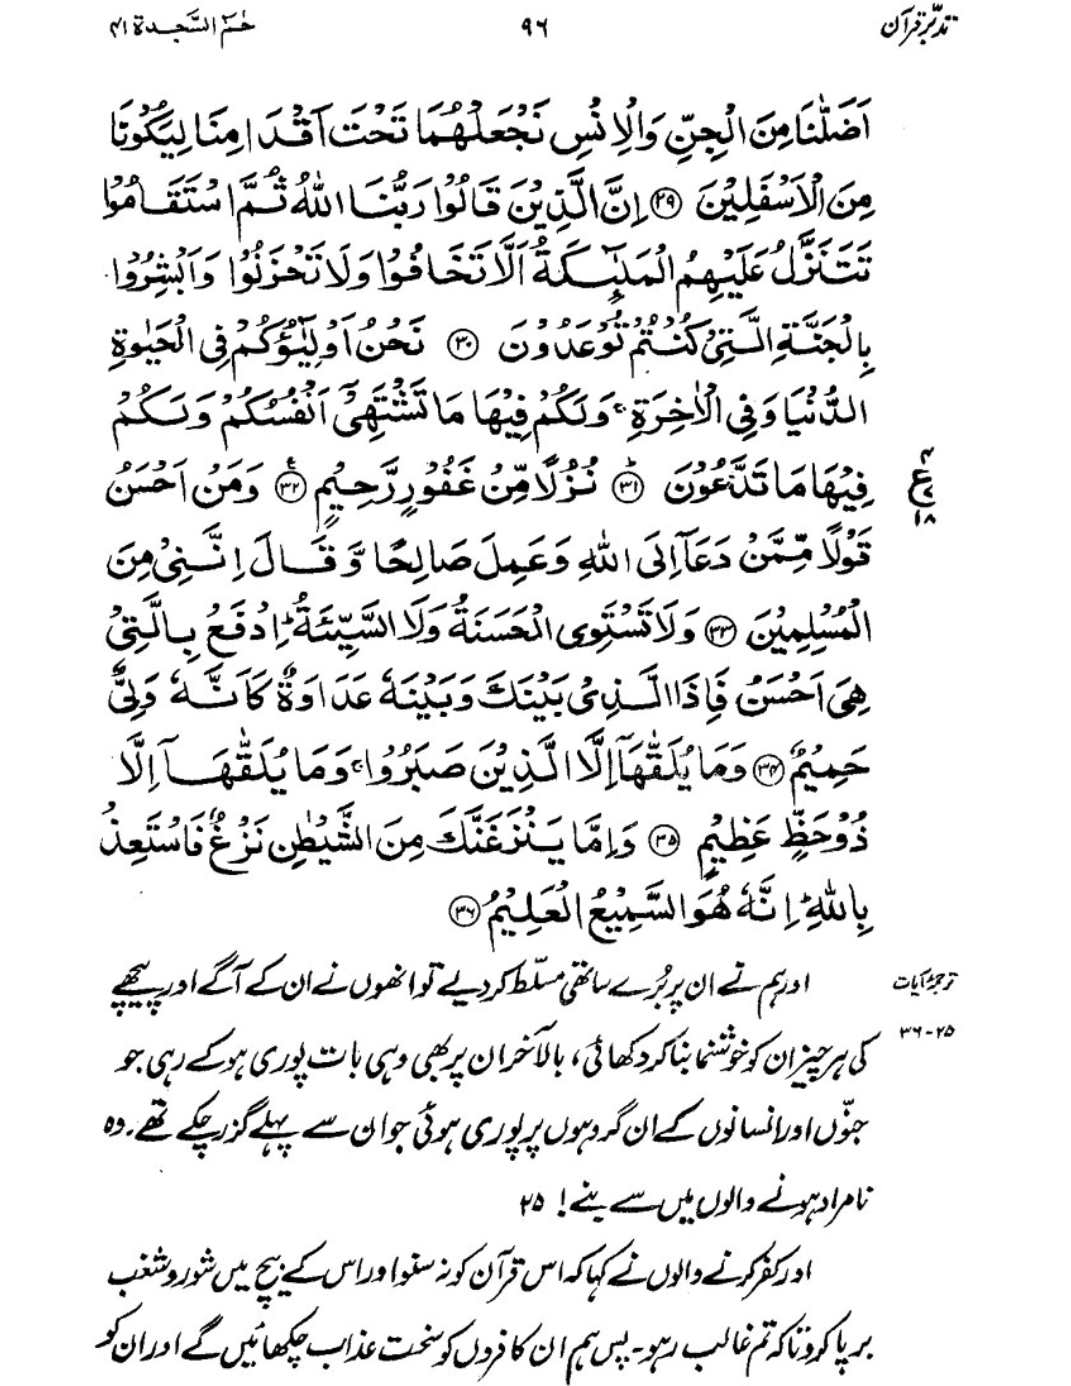 تدبّرِ قرآن ۹۶ حٰمٓ السَّجدة ۴۱
اَضَلّٰنَا مِنَ الْجِنِّ وَالْاِنْسِ نَجْعَلْهُمَا تَحْتَ اَقْدَامِنَا لِيَكُوْنَا
مِنَ الْاَسْفَلِيْنَ ﴿۲۹﴾ اِنَّ الَّذِيْنَ قَالُوْا رَبُّنَا اللّٰهُ ثُمَّ اسْتَقَامُوْا
تَتَنَزَّلُ عَلَيْهِمُ الْمَلٰٓئِكَةُ اَلَّا تَخَافُوْا وَلَا تَحْزَنُوْا وَاَبْشِرُوْا
بِالْجَنَّةِ الَّتِيْ كُنْتُمْ تُوْعَدُوْنَ ﴿۳۰﴾ نَحْنُ اَوْلِيٰٓؤُكُمْ فِي الْحَيٰوةِ
الدُّنْيَا وَفِي الْاٰخِرَةِ ۚ وَلَكُمْ فِيْهَا مَا تَشْتَهِيْٓ اَنْفُسُكُمْ وَلَكُمْ
فِيْهَا مَا تَدَّعُوْنَ ﴿۳۱﴾ نُزُلًا مِّنْ غَفُوْرٍ رَّحِيْمٍ ﴿۳۲﴾ وَمَنْ اَحْسَنُ
۴
ع
۱۸
قَوْلًا مِّمَّنْ دَعَآ اِلَى اللّٰهِ وَعَمِلَ صَالِحًا وَّقَالَ اِنَّنِيْ مِنَ
الْمُسْلِمِيْنَ ﴿۳۳﴾ وَلَا تَسْتَوِي الْحَسَنَةُ وَلَا السَّيِّئَةُ ؕ اِدْفَعْ بِالَّتِيْ
هِيَ اَحْسَنُ فَاِذَا الَّذِيْ بَيْنَكَ وَبَيْنَهٗ عَدَاوَةٌ كَاَنَّهٗ وَلِيٌّ
حَمِيْمٌ ﴿۳۴﴾ وَمَا يُلَقّٰهَآ اِلَّا الَّذِيْنَ صَبَرُوْا ۚ وَمَا يُلَقّٰهَآ اِلَّا
ذُوْ حَظٍّ عَظِيْمٍ ﴿۳۵﴾ وَاِمَّا يَنْزَغَنَّكَ مِنَ الشَّيْطٰنِ نَزْغٌ فَاسْتَعِذْ
بِاللّٰهِ ؕ اِنَّهٗ هُوَ السَّمِيْعُ الْعَلِيْمُ ﴿۳۶﴾
ترجمۂ آیات
۲۵-۳۶
اور ہم نے ان پر بُرے ساتھی مسلّط کر دیے تو انھوں نے ان کے آگے اور پیچھے
کی ہر چیز ان کو خوشنما بنا کر دکھائی، بالآخر ان پر بھی وہی بات پوری ہو کے رہی جو
جنّوں اور انسانوں کے ان گروہوں پر پوری ہوئی جو ان سے پہلے گزر چکے تھے۔ وہ
نامراد ہونے والوں میں سے بنے! ۲۵
اور کفر کرنے والوں نے کہا کہ اس قرآن کو نہ سنو اور اس کے بیچ میں شور و شغب
برپا کرو تاکہ تم غالب رہو۔ پس ہم ان کافروں کو سخت عذاب چکھائیں گے اور ان کو